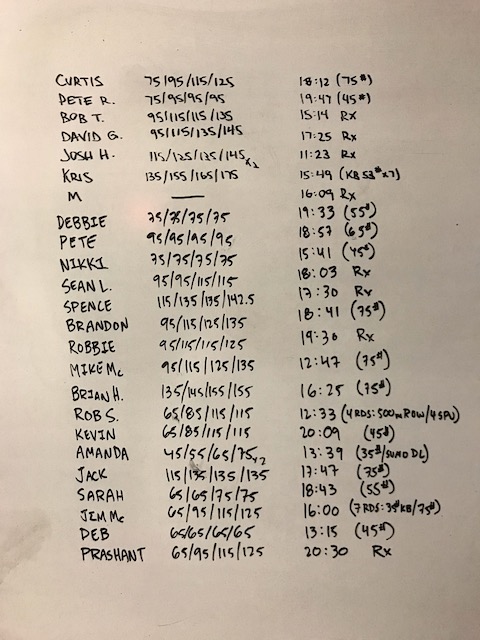 CURTIS 75/95/115/125 18:12 (75#)
PETE R. 75/95/95/95 19:47 (45#)
BOB T. 95/115/115/135 15:14 Rx
DAVID G. 95/115/135/145 17:25 Rx
JOSH H. 115/125/135/145x2 11:23 Rx
KRIS 135/155/165/175 15:49 (KB 53#x7)
M — 16:09 Rx
DEBBIE 75/75/75/75 19:33 (55#)
PETE 95/95/95/95 18:57 (65#)
NIKKI 75/75/75/75 15:41 (45#)
SEAN L. 95/95/115/115 18:03 Rx
SPENCE 115/135/135/142.5 17:30 Rx
BRANDON 95/115/125/135 18:41 (75#)
ROBBIE 95/115/115/125 19:36 Rx
MIKE Mc 95/115/125/135 12:47 (75#)
BRIAN H. 135/145/155/155 16:25 (75#)
ROB S. 65/85/115/115 12:33 (4 RDS: 500m ROW/45PU)
KEVIN 65/85/115/115 20:09 (45#)
AMANDA 45/55/65/75x2 13:39 (35#/SUMO DL)
JACK 115/135/135/135 17:47 (75#)
SARAH 65/65/75/75 18:43 (55#)
JIM Mc 65/95/115/125 16:00 (7 RDS: 35#KB/75#)
DEB 65/65/65/65 13:15 (45#)
PRASHANT 65/95/115/125 20:30 Rx